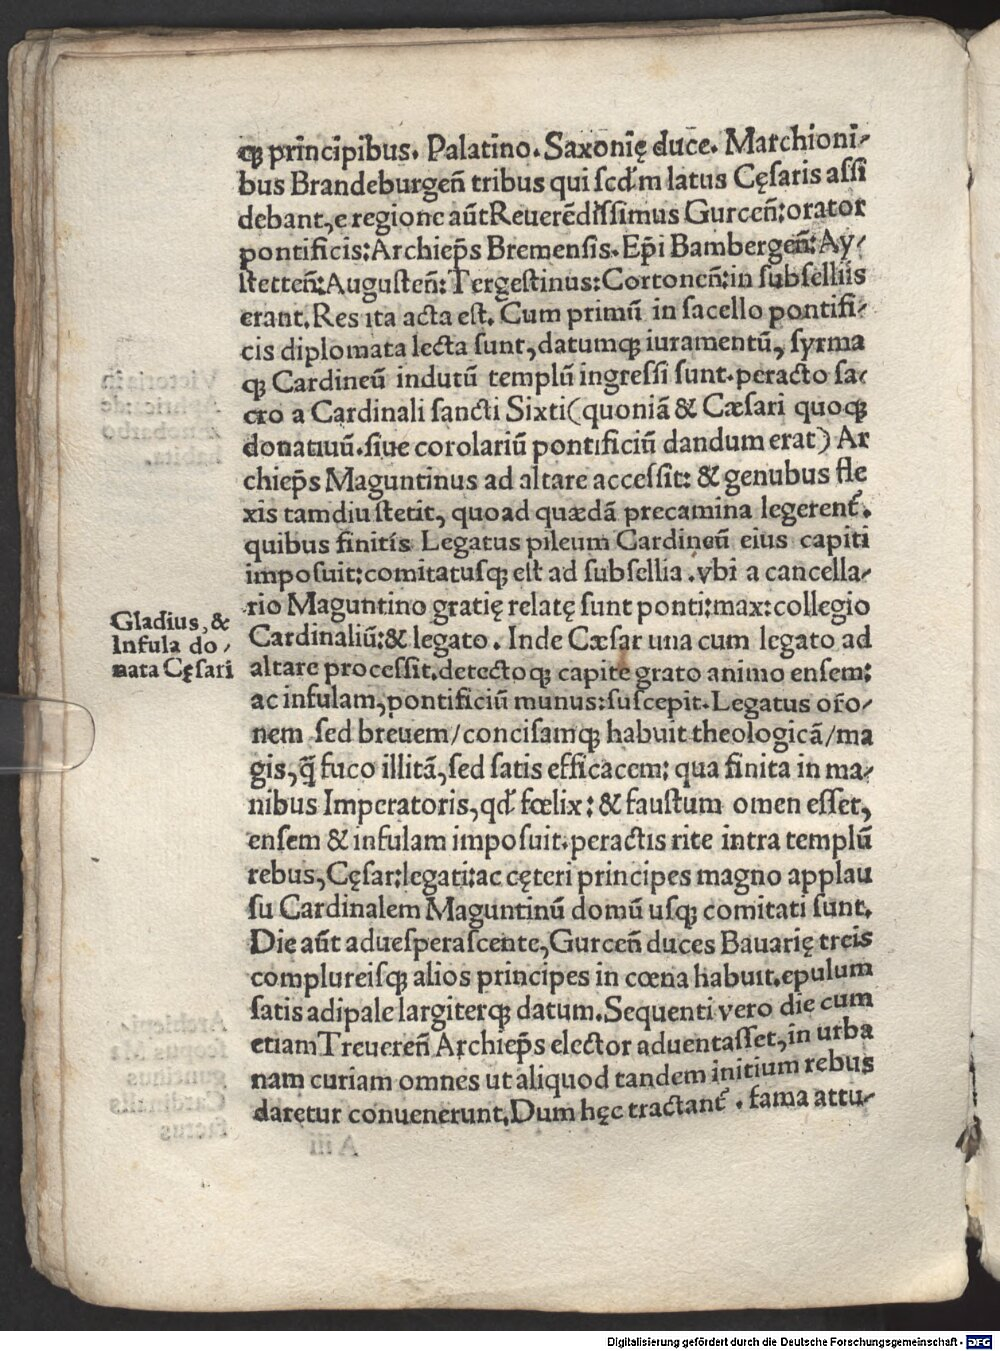 qꝫ principibus. Palatino. Saxonię duce. Marchioni-
bus Brandeburgeñ tribus qui scd'm latus Cęsaris assi
debant, e regione aūt Reuerēdissimus Gurceñ: orator
pontificis: Archiep̄s Bremensis. Ep̄i Bambergeñ: Ay-
stetteñ: Augusteñ: Tergestinus: Cortoneñ: in subselliis
erant. Res ita acta est. Cum primū in sacello pontifi-
cis diplomata lecta sunt, datumqꝫ iuramentū, syrma
qꝫ Cardineū indutū templū ingressi sunt. peracto sa-
cro a Cardinali sancti Sixti (quoniā & Cæsari quoqꝫ
donatiuū. siue corolariū pontificiū dandum erat) Ar
chiep̄s Maguntinus ad altare accessit: & genubus fle
xis tamdiu stetit, quoad quædā precamina legerent᷑.
quibus finitis Legatus pileum Cardineū eius capiti
imposuit: comitatusqꝫ est ad subsellia. vbi a cancella-
rio Maguntino gratię relatę sunt ponti: max: collegio
Cardinaliū: & legato. Inde Cæsar una cum legato ad
altare processit. detectoqꝫ capite grato animo ensem:
ac infulam, pontificiū munus: suscepit. Legatus oro-
nem sed breuem/concisamqꝫ habuit theologicā/ma
gis, q̄ fuco illitā, sed satis efficacem: qua finita in ma-
nibus Imperatoris, qd' fœlix: & faustum omen esset,
ensem & infulam imposuit. peractis rite intra templū
rebus, Cęsar: legati: ac cęteri principes magno applau
su Cardinalem Maguntinū domū usqꝫ comitati sunt.
Die aūt aduesperascente, Gurceñ duces Bauarię treis
complureisqꝫ alios principes in cœna habuit. epulum
satis adipale largiterqꝫ datum. Sequenti vero die cum
etiam Treuereñ Archiep̄s elector aduentasset, in urba
nam curiam omnes ut aliquod tandem initium rebus
daretur conuenerunt. Dum hęc tractant᷑. fama attu-
Gladius, &
Infula do-
nata Cęsari
Digitalisierung gefördert durch die Deutsche Forschungsgemeinschaft - DFG